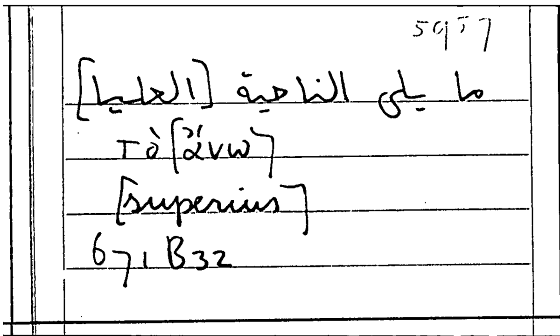 5957
ما يلى الناحية [العليا]
τὸ [ἄνω]
[superius]
671 B32